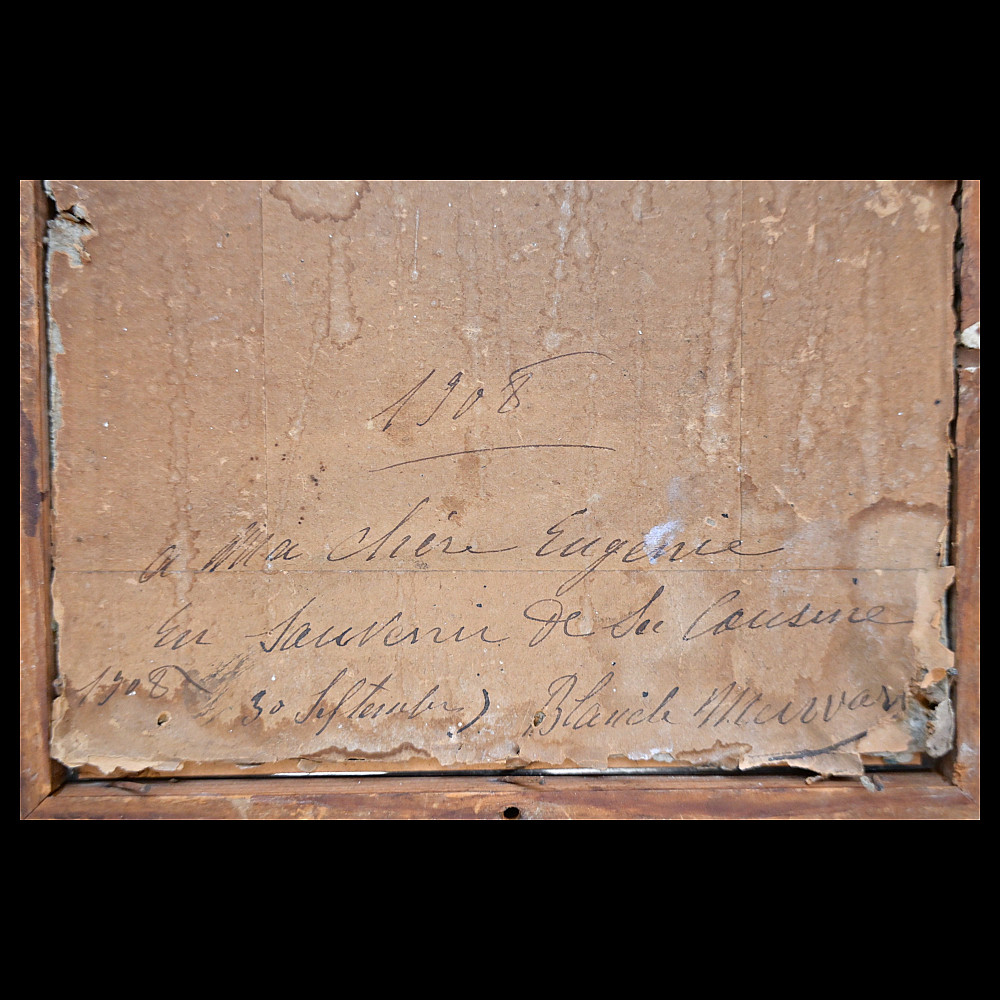 1908
a Ma chère Eugénie
En Souvenir De Sa Cousine
1908 30 Septembre) Blanche